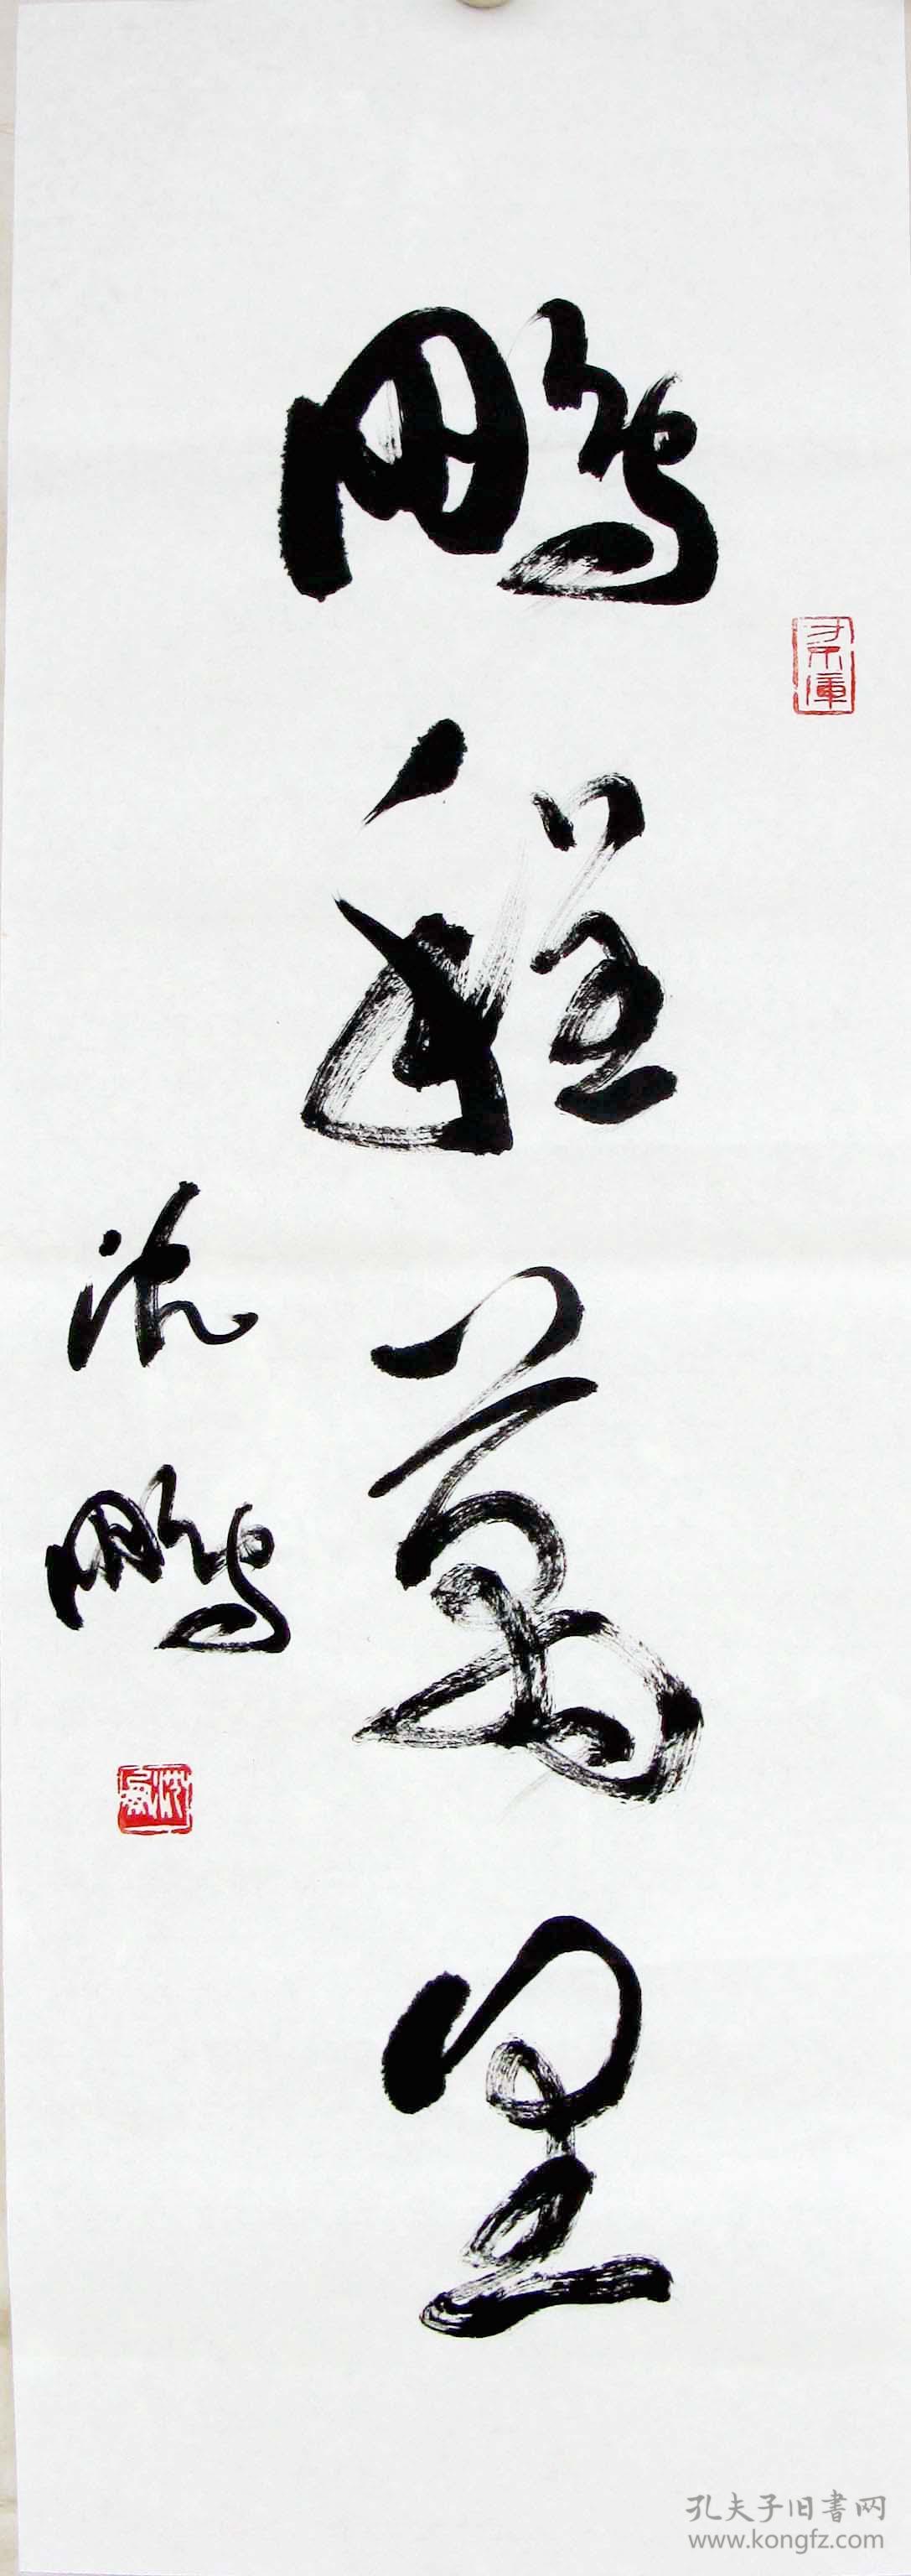 鵬程萬里
沈鵬
孔夫子旧書网
www.kongfz.com